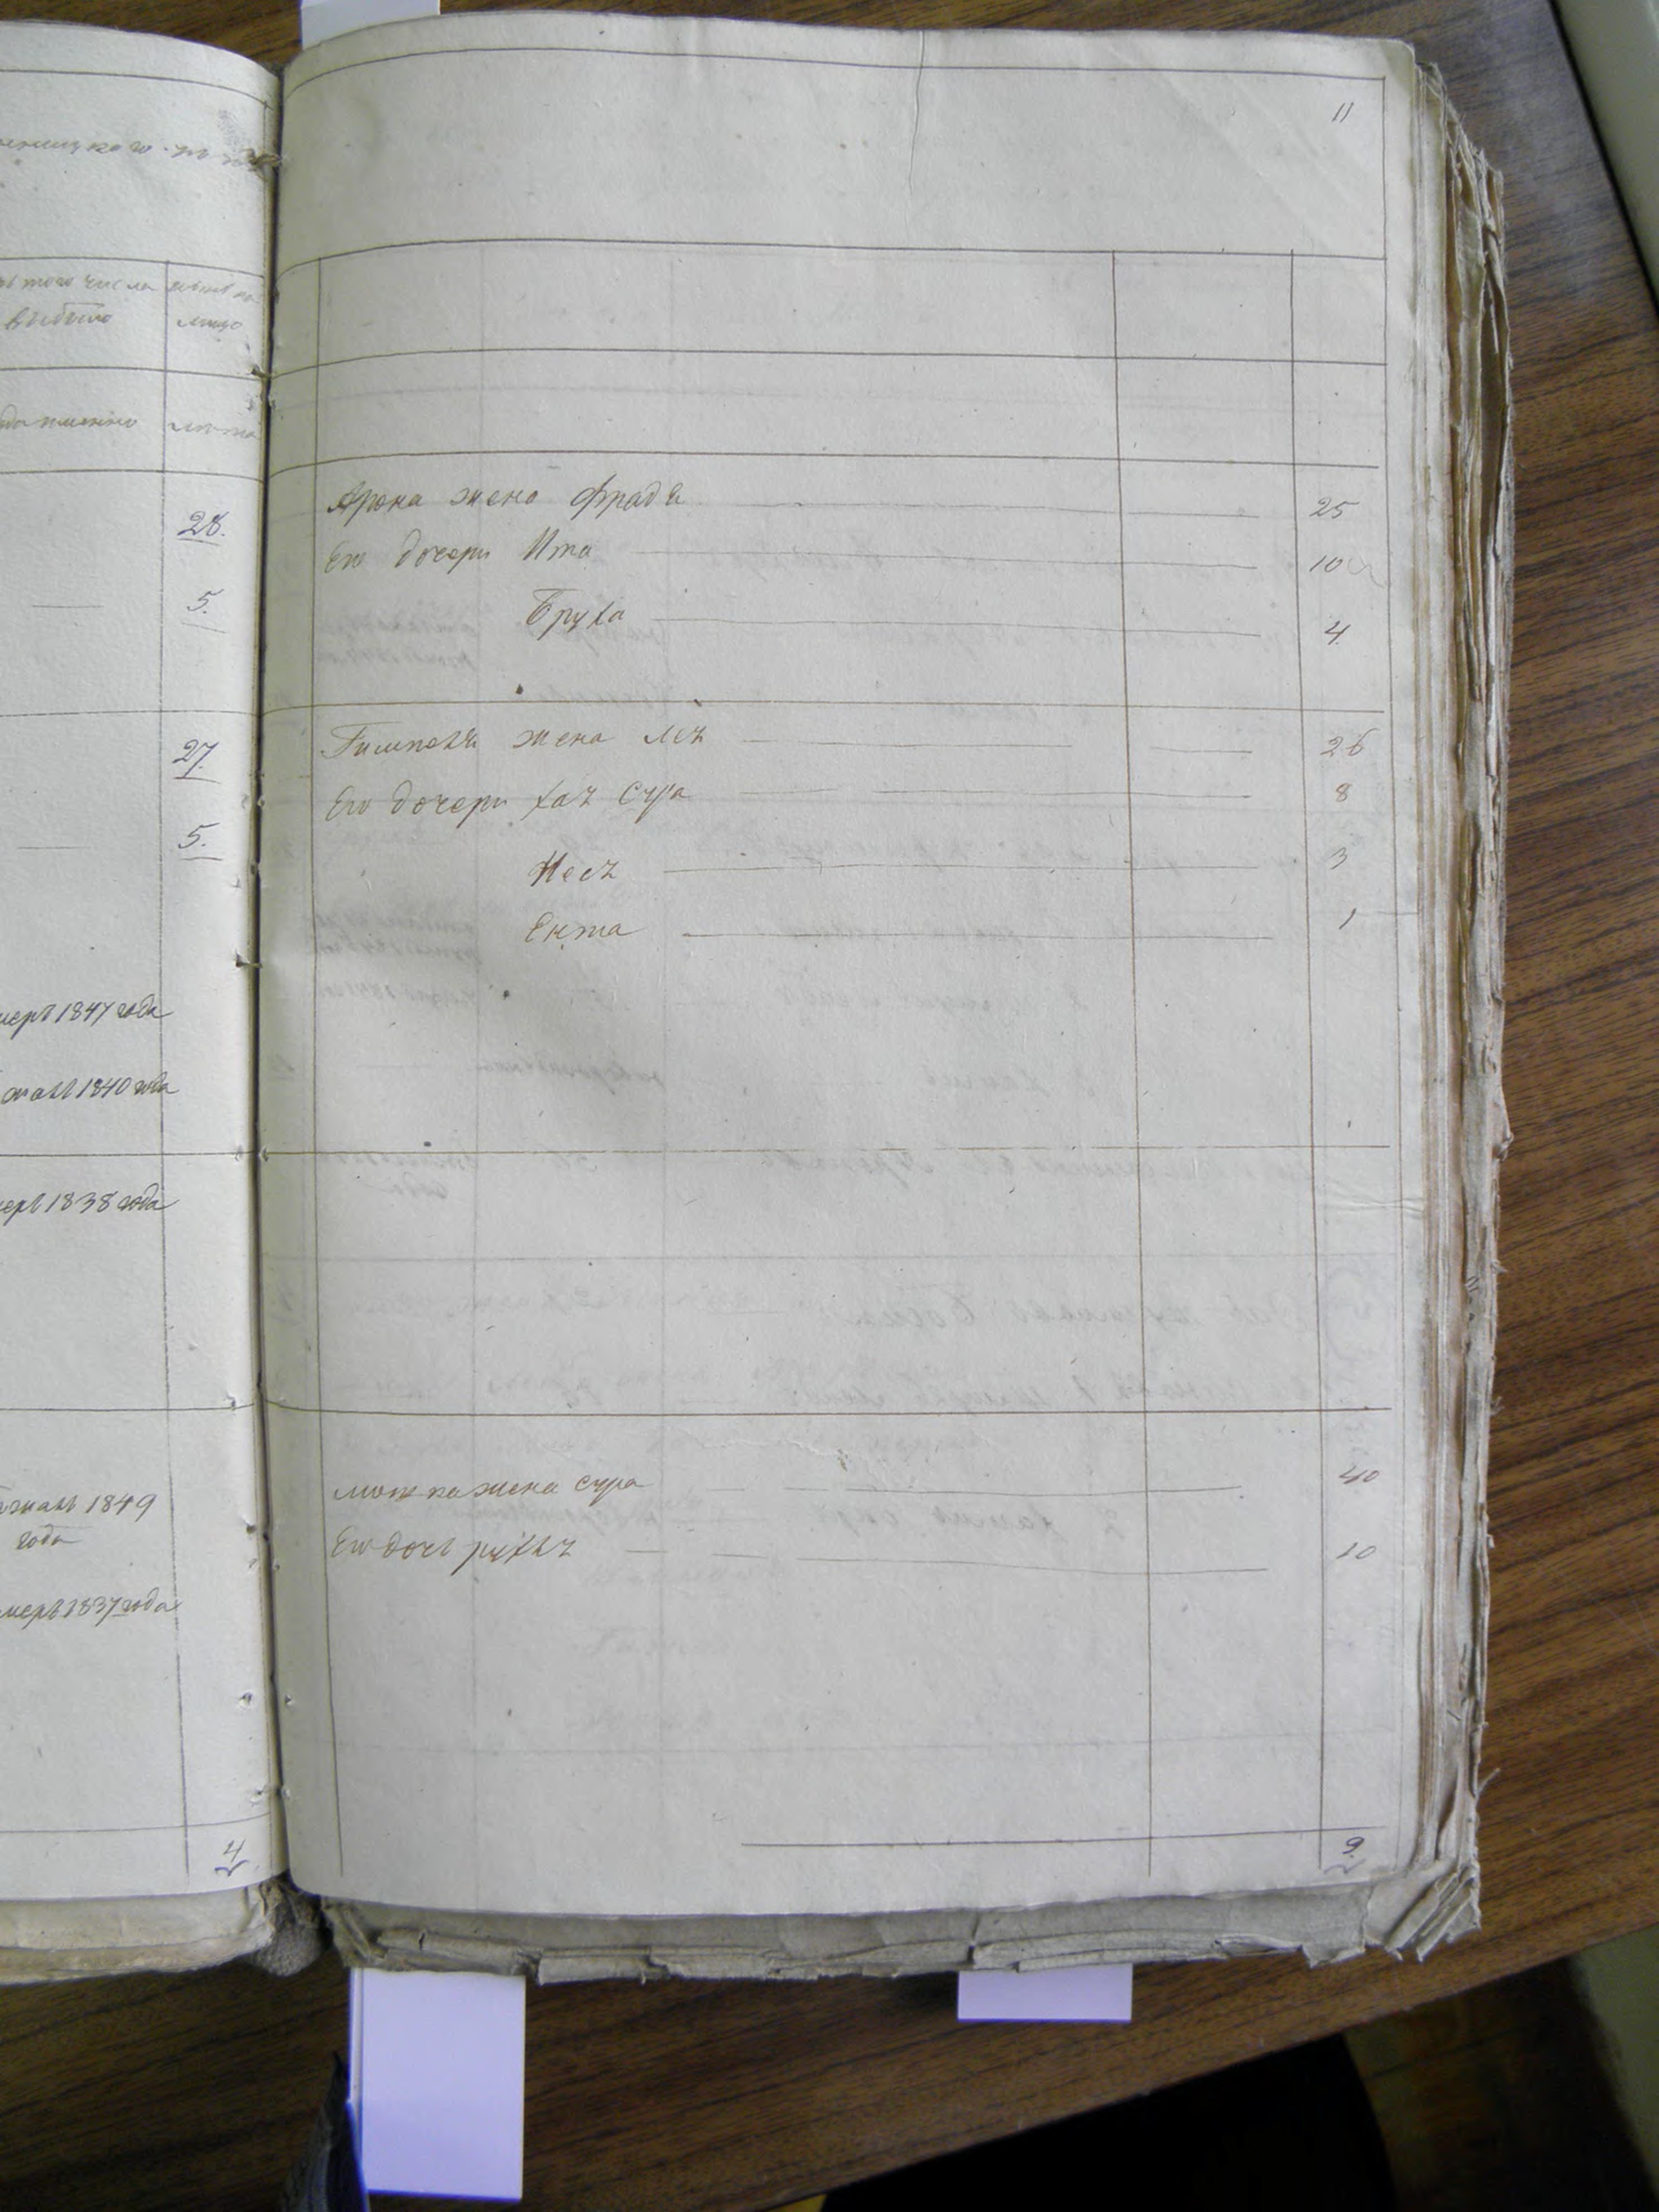 изъ того числа
выбыло
лицо
лѣта
28.
5.
27.
5.
умеръ 1847 года
1840 года
умеръ 1838 года
1849
года
умеръ 1837 года
4
11
Арона жена Фрадя 25
Его дочери Ита 10
Бруха 4.
жена Лея 26
Его дочери Хая Сура 8
Неся 3
Ента 1
Мошка жена Сура 40
Его дочь Рухля 10
9.